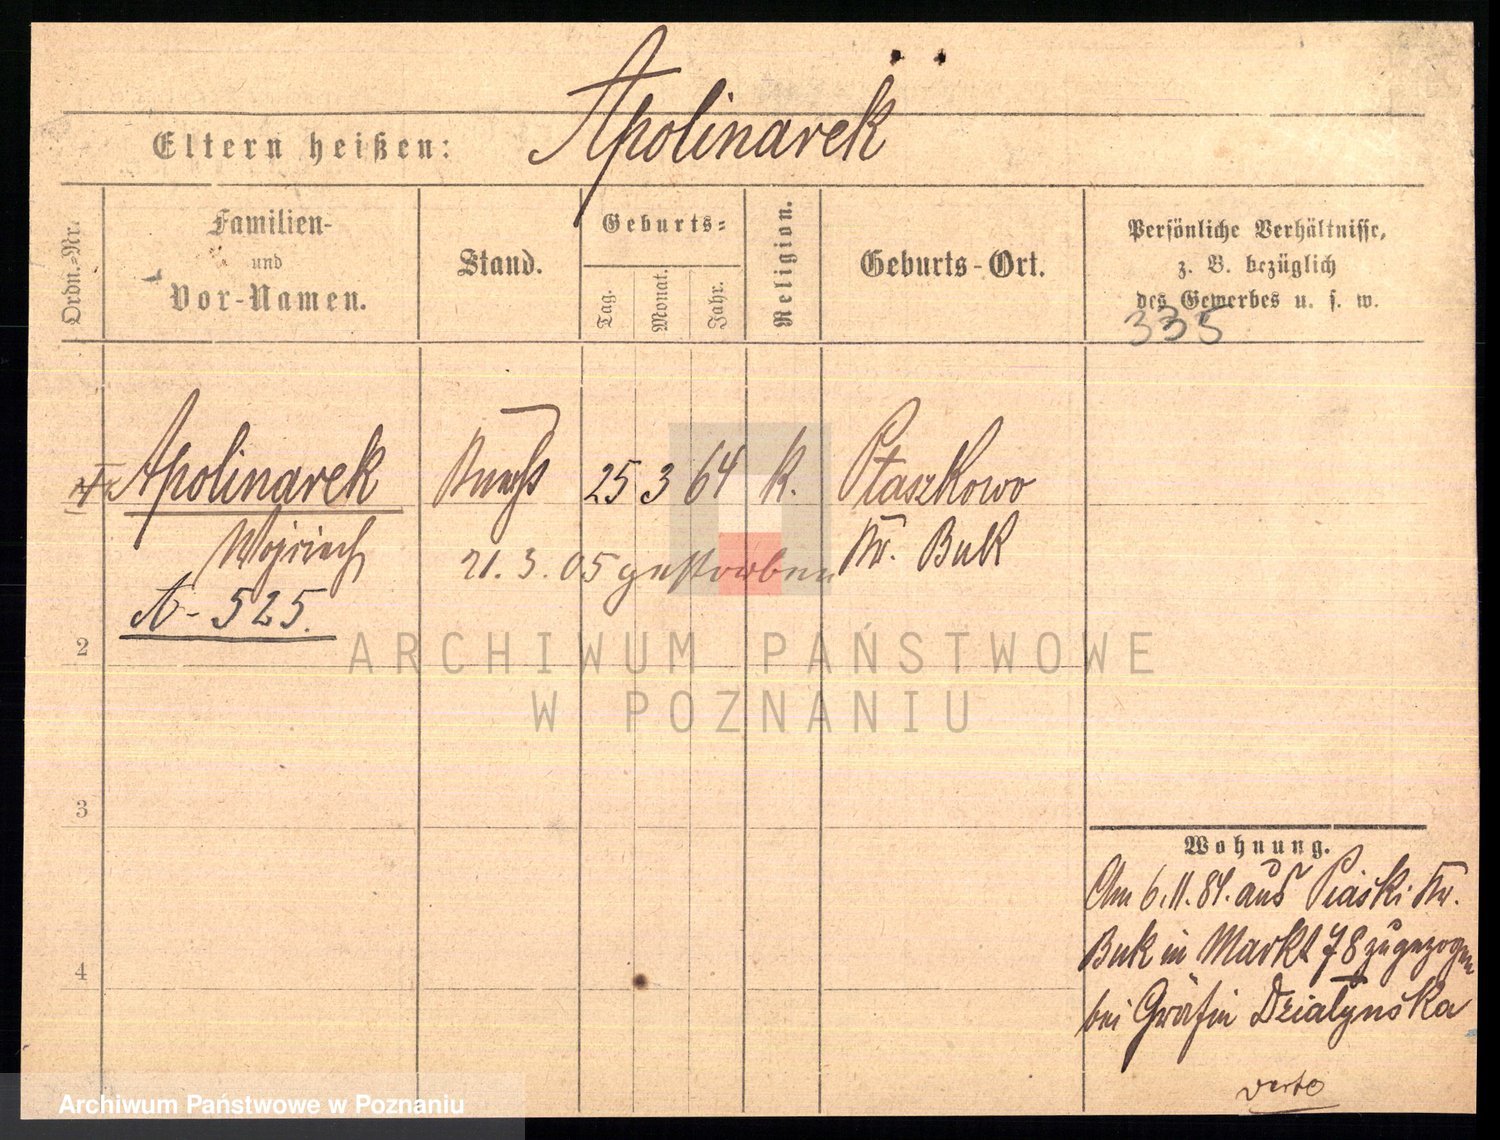 Apolinarek
Eltern heißen:
Ordn.-Nr.
Familien-
und
Vor-Namen.
Stand.
Geburts-
Tag.
Monat.
Jahr.
Religion.
Geburts-Ort.
Persönliche Verhältnisse,
z. B. bezüglich
des Gewerbes u. s. w.
335
Apolinarek 25 3 64 K. Ptaszkowo
Wojciech Kr. Buk
21.3.05 gestorben
A-525.
2
3
4
Wohnung.
Am 6.11.84. aus Piaski Kr.
Buk in Markt 78 zugezogen
bei Gräfin Dzialynska
verte
ARCHIWUM PAŃSTWOWE
W POZNANIU
Archiwum Państwowe w Poznaniu